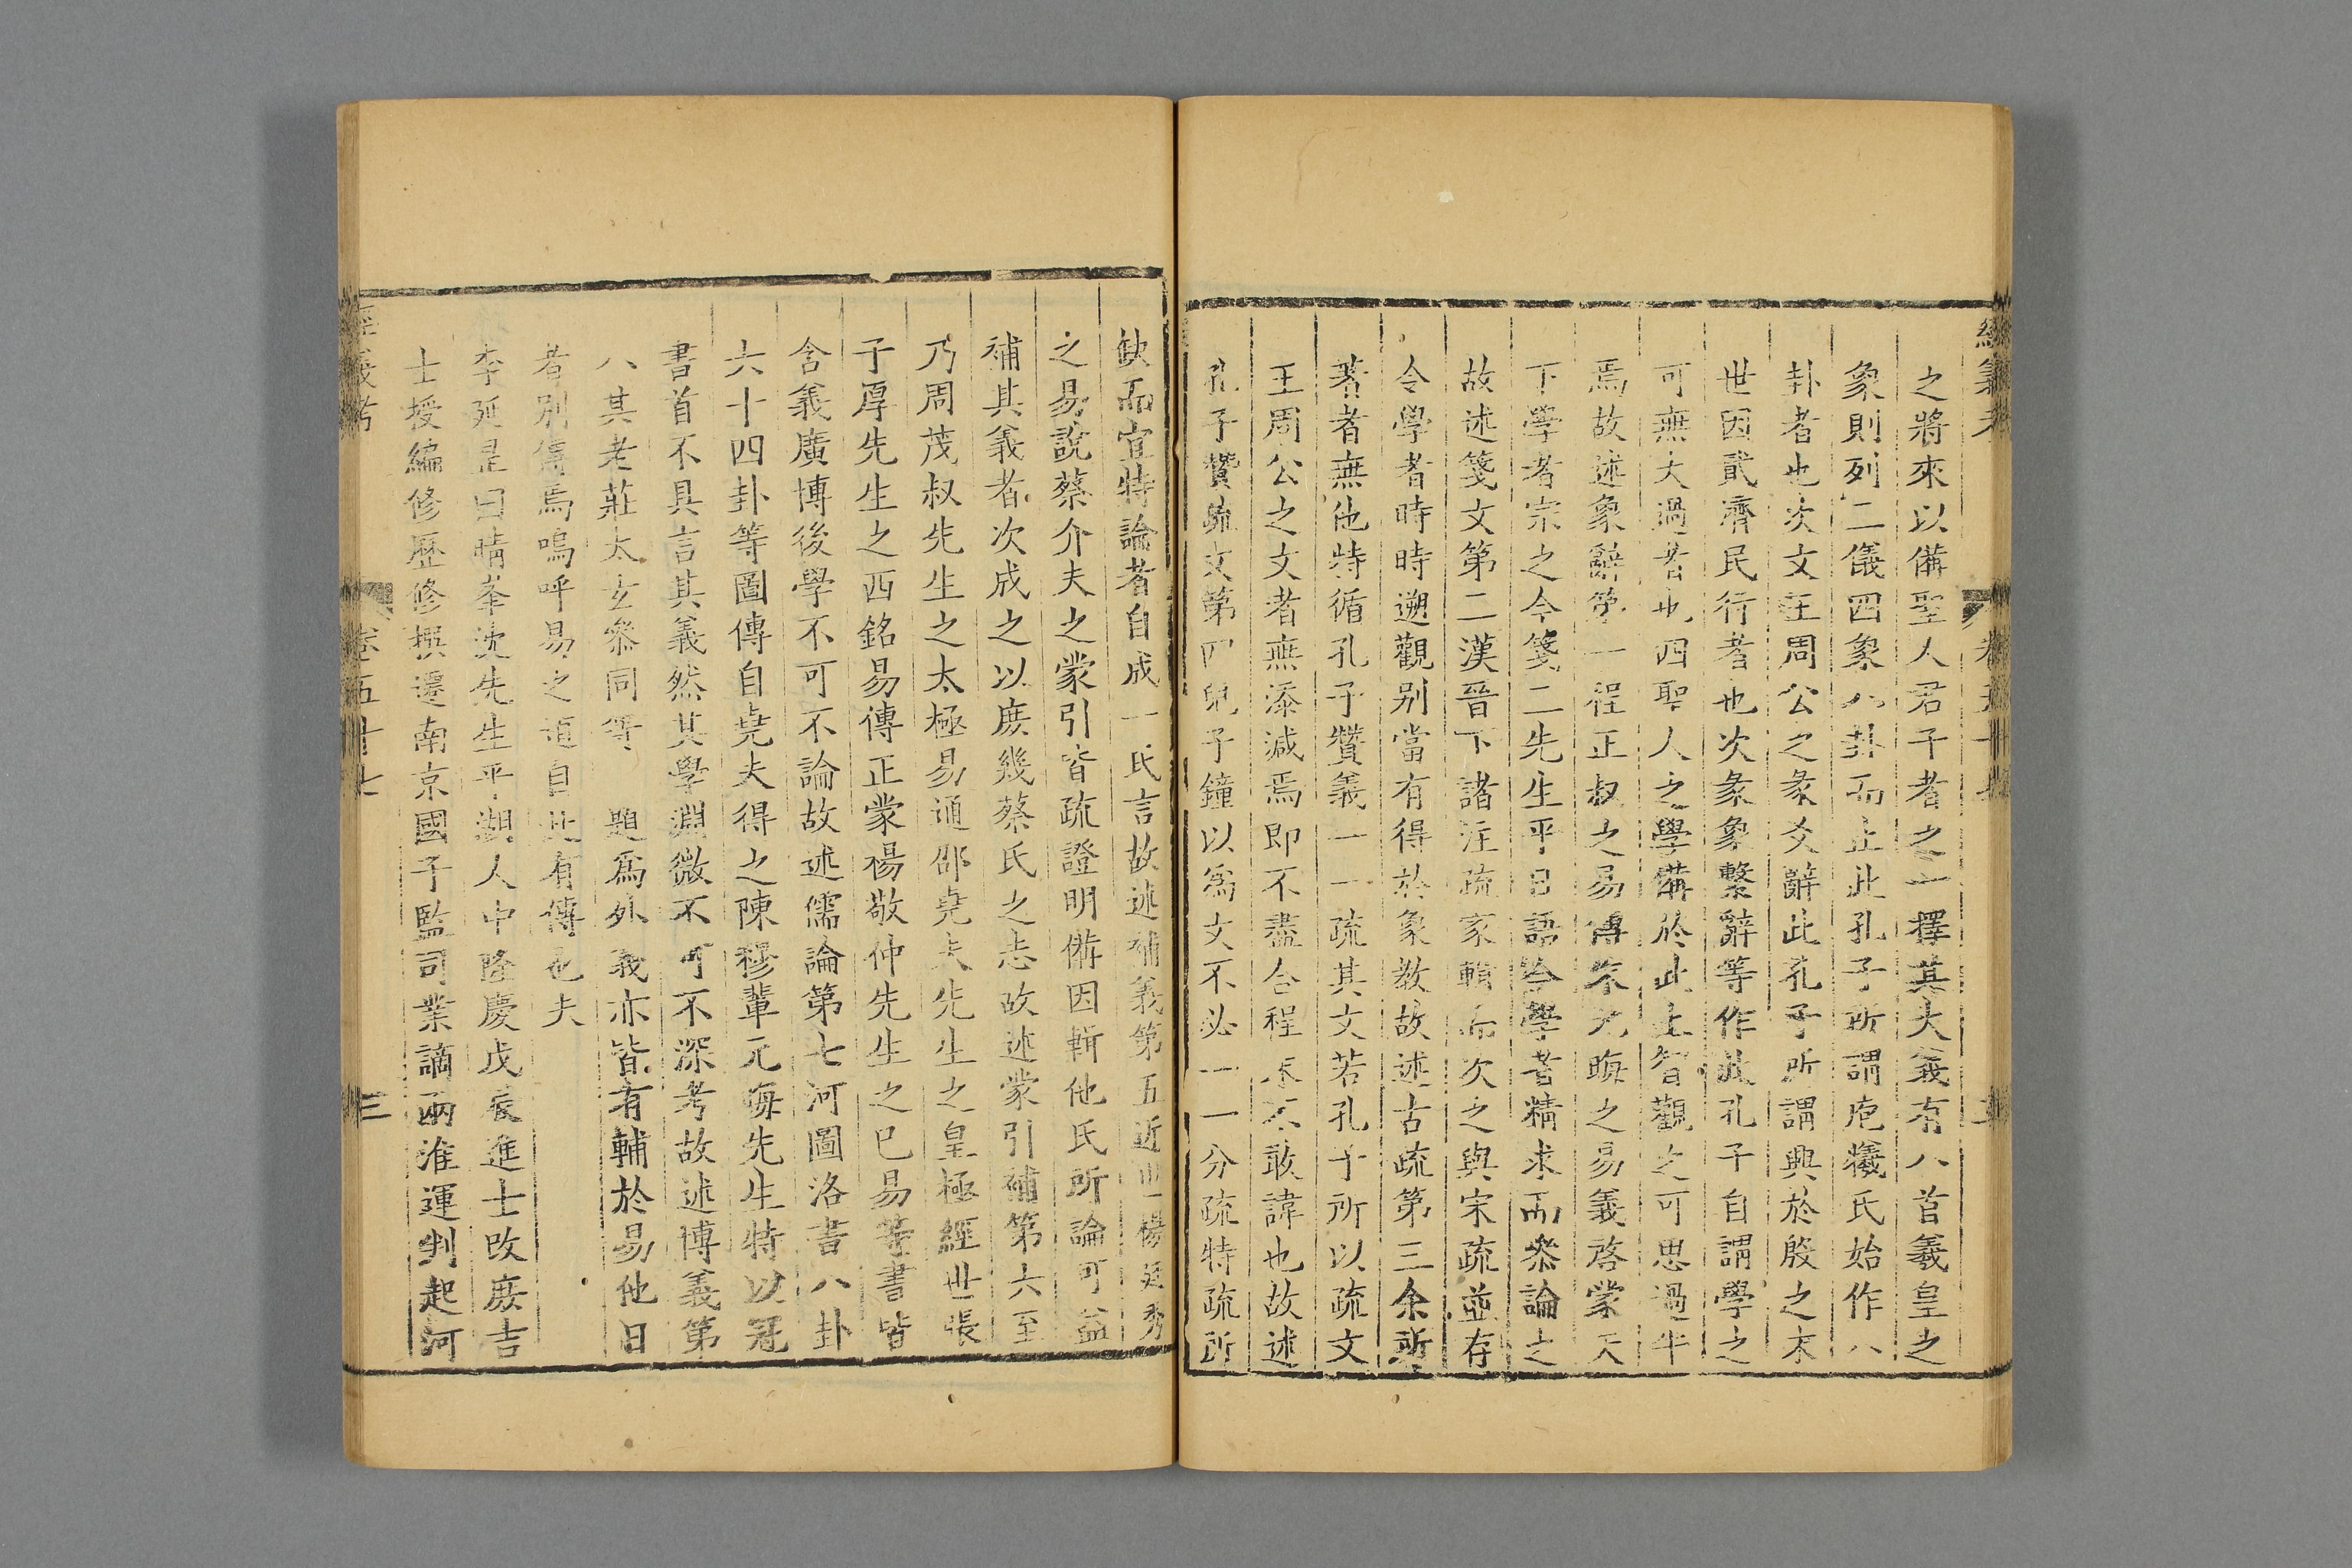 經義考 卷五十七
之將來以備聖人君子者之一擇其大義有八首羲皇之
象則列二儀四象八卦而止此孔子所謂庖犧氏始作八
卦者也次文王周公之彖爻辭此孔子所謂興於殷之末
世因貳濟民行者也次彖象繫辭等作故孔子自謂學之
可無大過者也四聖人之學備於此上智觀之可思過半
焉故述象辭第一程正叔之易傳朱元晦之易義啓蒙天
下學者宗之今箋二先生平日語令學者精求而叅論之
故述箋文第二漢晉下諸注疏家輯而次之與宋疏並存
令學者時時遡觀別當有得於象教故述古疏第三余所
著者無他特循孔子贊義一一疏其文若孔子所以疏文
王周公之文者無添減焉即不盡合程朱不敢諱也故述
孔子贊疏文第四兒子鐘以爲文不必一一分疏特疏所
缺而宜特論者自成一氏言故述補義第五近世楊廷秀
之易說蔡介夫之蒙引皆疏證明備因輯他氏所論可益
補其義者次成之以庻幾蔡氏之志故述蒙引補第六至
乃周茂叔先生之太極易通邵堯夫先生之皇極經世張
子厚先生之西銘易傳正蒙楊敬仲先生之巳易等書皆
含義廣博後學不可不論故述儒論第七河圖洛書八卦
六十四卦等圖傳自堯夫得之陳穆輩元晦先生特以冠
書首不具言其義然其學淵微不可不深考故述博義第
八其老莊太玄叅同等 題爲外義亦皆有輔於易他日
者別傳焉嗚呼易之道自此有傳也夫
李延昰曰晴峯沈先生平湖人中隆慶戊辰進士改庻吉
士授編修歷修撰遷南京國子監司業謫兩淮運判起河
經義考 卷五十七 三